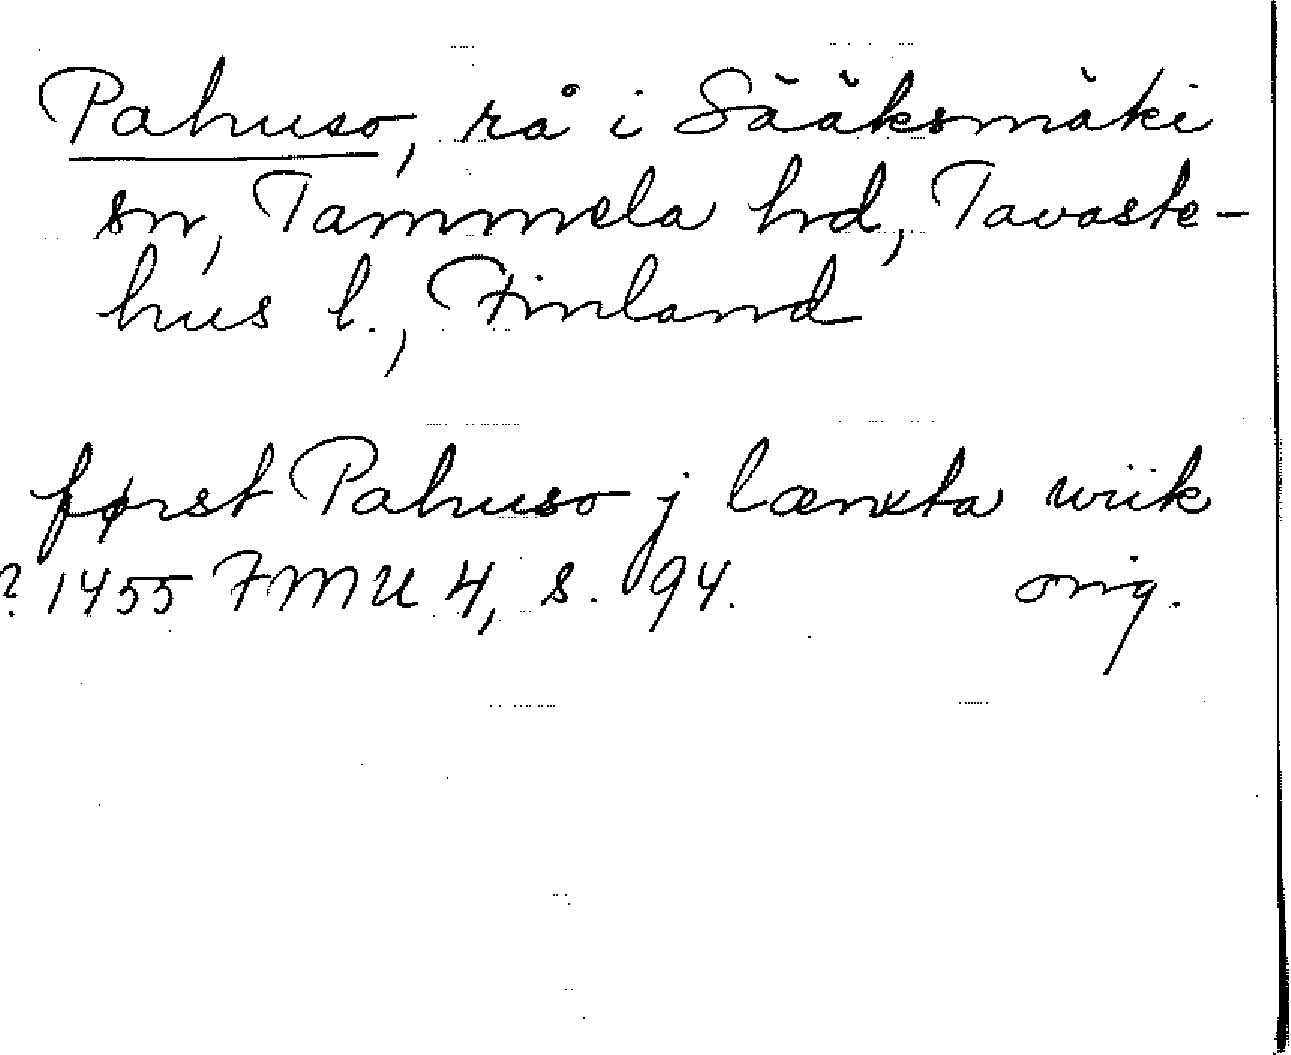 Pahuso, rå i Sääksmäki
sn, Tammela hd, Tavaste-
hus l., Finland
først Pahuso j længta wiik
? 1455 FMU 4, s. 94. orig.